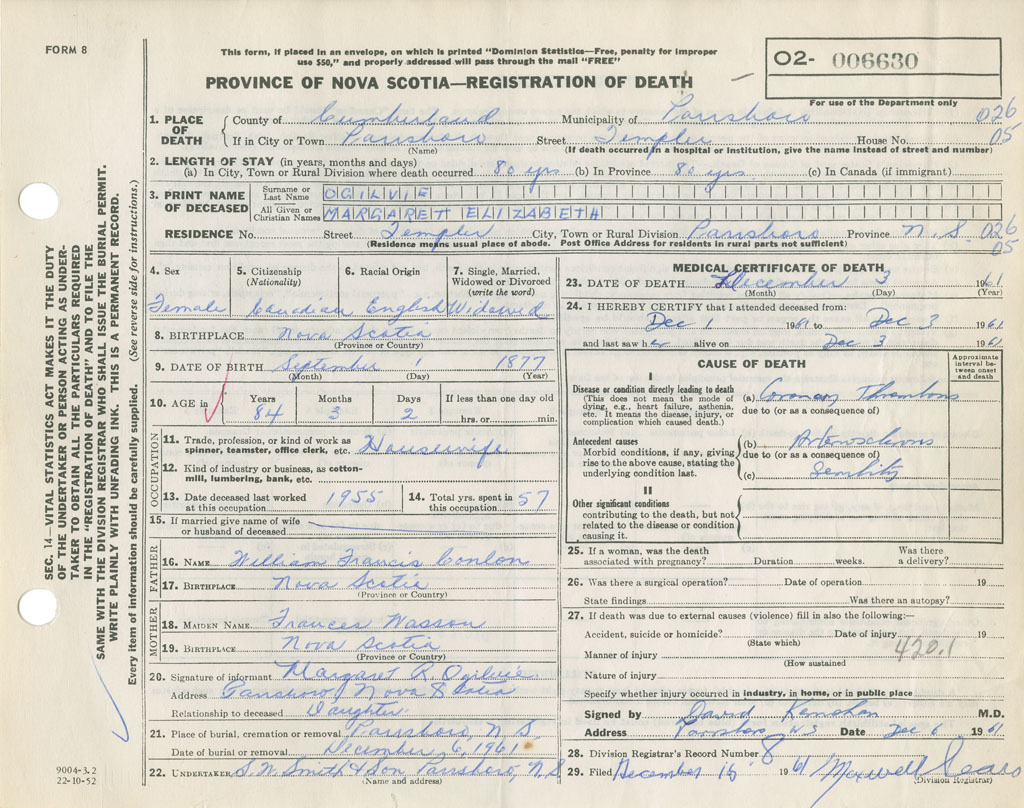 FORM 8
This form, if placed in an envelope, on which is printed "Dominion Statistics—Free, penalty for improper
use $50," and properly addressed will pass through the mail "FREE"
PROVINCE OF NOVA SCOTIA—REGISTRATION OF DEATH
O2- 006630
For use of the Department only
1. PLACE OF DEATH County of Cumberland Municipality of Parrsboro 026
If in City or Town Parrsboro Street Templer House No. 05
(Name) (If death occurred in a hospital or institution, give the name instead of street and number)
2. LENGTH OF STAY (in years, months and days)
(a) In City, Town or Rural Division where death occurred 80 yrs (b) In Province 80 yrs (c) In Canada (if immigrant)
3. PRINT NAME OF DECEASED Surname or Last Name OGILVIE
All Given or Christian Names MARGARETT ELIZABETH
RESIDENCE No. Street Templer City, Town or Rural Division Parrsboro Province N.S. 026
05
(Residence means usual place of abode. Post Office Address for residents in rural parts not sufficient)
4. Sex 5. Citizenship (Nationality) 6. Racial Origin 7. Single, Married, Widowed or Divorced (write the word)
Female Canadian English Widowed
8. BIRTHPLACE Nova Scotia
(Province or Country)
9. DATE OF BIRTH September 1 1877
(Month) (Day) (Year)
10. AGE in Years Months Days If less than one day old
84 3 2 hrs. or min.
OCCUPATION
11. Trade, profession, or kind of work as spinner, teamster, office clerk, etc. Housewife
12. Kind of industry or business, as cotton-mill, lumbering, bank, etc.
13. Date deceased last worked at this occupation 1955 14. Total yrs. spent in this occupation 57
15. If married give name of wife or husband of deceased
FATHER
16. NAME William Francis Conlon
17. BIRTHPLACE Nova Scotia
(Province or Country)
MOTHER
18. MAIDEN NAME Frances Wasson
19. BIRTHPLACE Nova Scotia
(Province or Country)
20. Signature of informant Margaret R. Ogilvie
Address Parrsboro, Nova Scotia
Relationship to deceased Daughter
21. Place of burial, cremation or removal Parrsboro, N.S.
Date of burial or removal December 6, 1961
22. UNDERTAKER S.W. Smith & Son Parrsboro, N.S.
(Name and address)
MEDICAL CERTIFICATE OF DEATH
23. DATE OF DEATH December 3 1961
(Month) (Day) (Year)
24. I HEREBY CERTIFY that I attended deceased from:
Dec 1 1961 to Dec 3 1961
and last saw her alive on Dec 3 1961
CAUSE OF DEATH
Approximate interval between onset and death
I
Disease or condition directly leading to death (a) Coronary Thrombosis
(This does not mean the mode of dying, e.g., heart failure, asthenia, etc. It means the disease, injury, or complication which caused death.)
due to (or as a consequence of)
Antecedent causes (b) Arteriosclerosis
Morbid conditions, if any, giving rise to the above cause, stating the underlying condition last.
due to (or as a consequence of)
(c) Senility
II
Other significant conditions
contributing to the death, but not related to the disease or condition causing it.
25. If a woman, was the death associated with pregnancy? Duration weeks. Was there a delivery?
26. Was there a surgical operation? Date of operation 19
State findings Was there an autopsy?
27. If death was due to external causes (violence) fill in also the following:—
Accident, suicide or homicide? Date of injury 19
(State which)
Manner of injury 420.1
(How sustained
Nature of injury
Specify whether injury occurred in industry, in home, or in public place
Signed by David M.D.
Address Parrsboro NS Date Dec 6 1961
28. Division Registrar's Record Number 8
29. Filed December 15 1961 Maxwell
(Division Registrar)
SEC. 14—VITAL STATISTICS ACT MAKES IT THE DUTY
OF THE UNDERTAKER OR PERSON ACTING AS UNDER-
TAKER TO OBTAIN ALL THE PARTICULARS REQUIRED
IN THE "REGISTRATION OF DEATH" AND TO FILE THE
SAME WITH THE DIVISION REGISTRAR WHO SHALL ISSUE THE BURIAL PERMIT.
WRITE PLAINLY WITH UNFADING INK. THIS IS A PERMANENT RECORD.
Every item of information should be carefully supplied. (See reverse side for instructions.)
9004-3.2
22-10-52